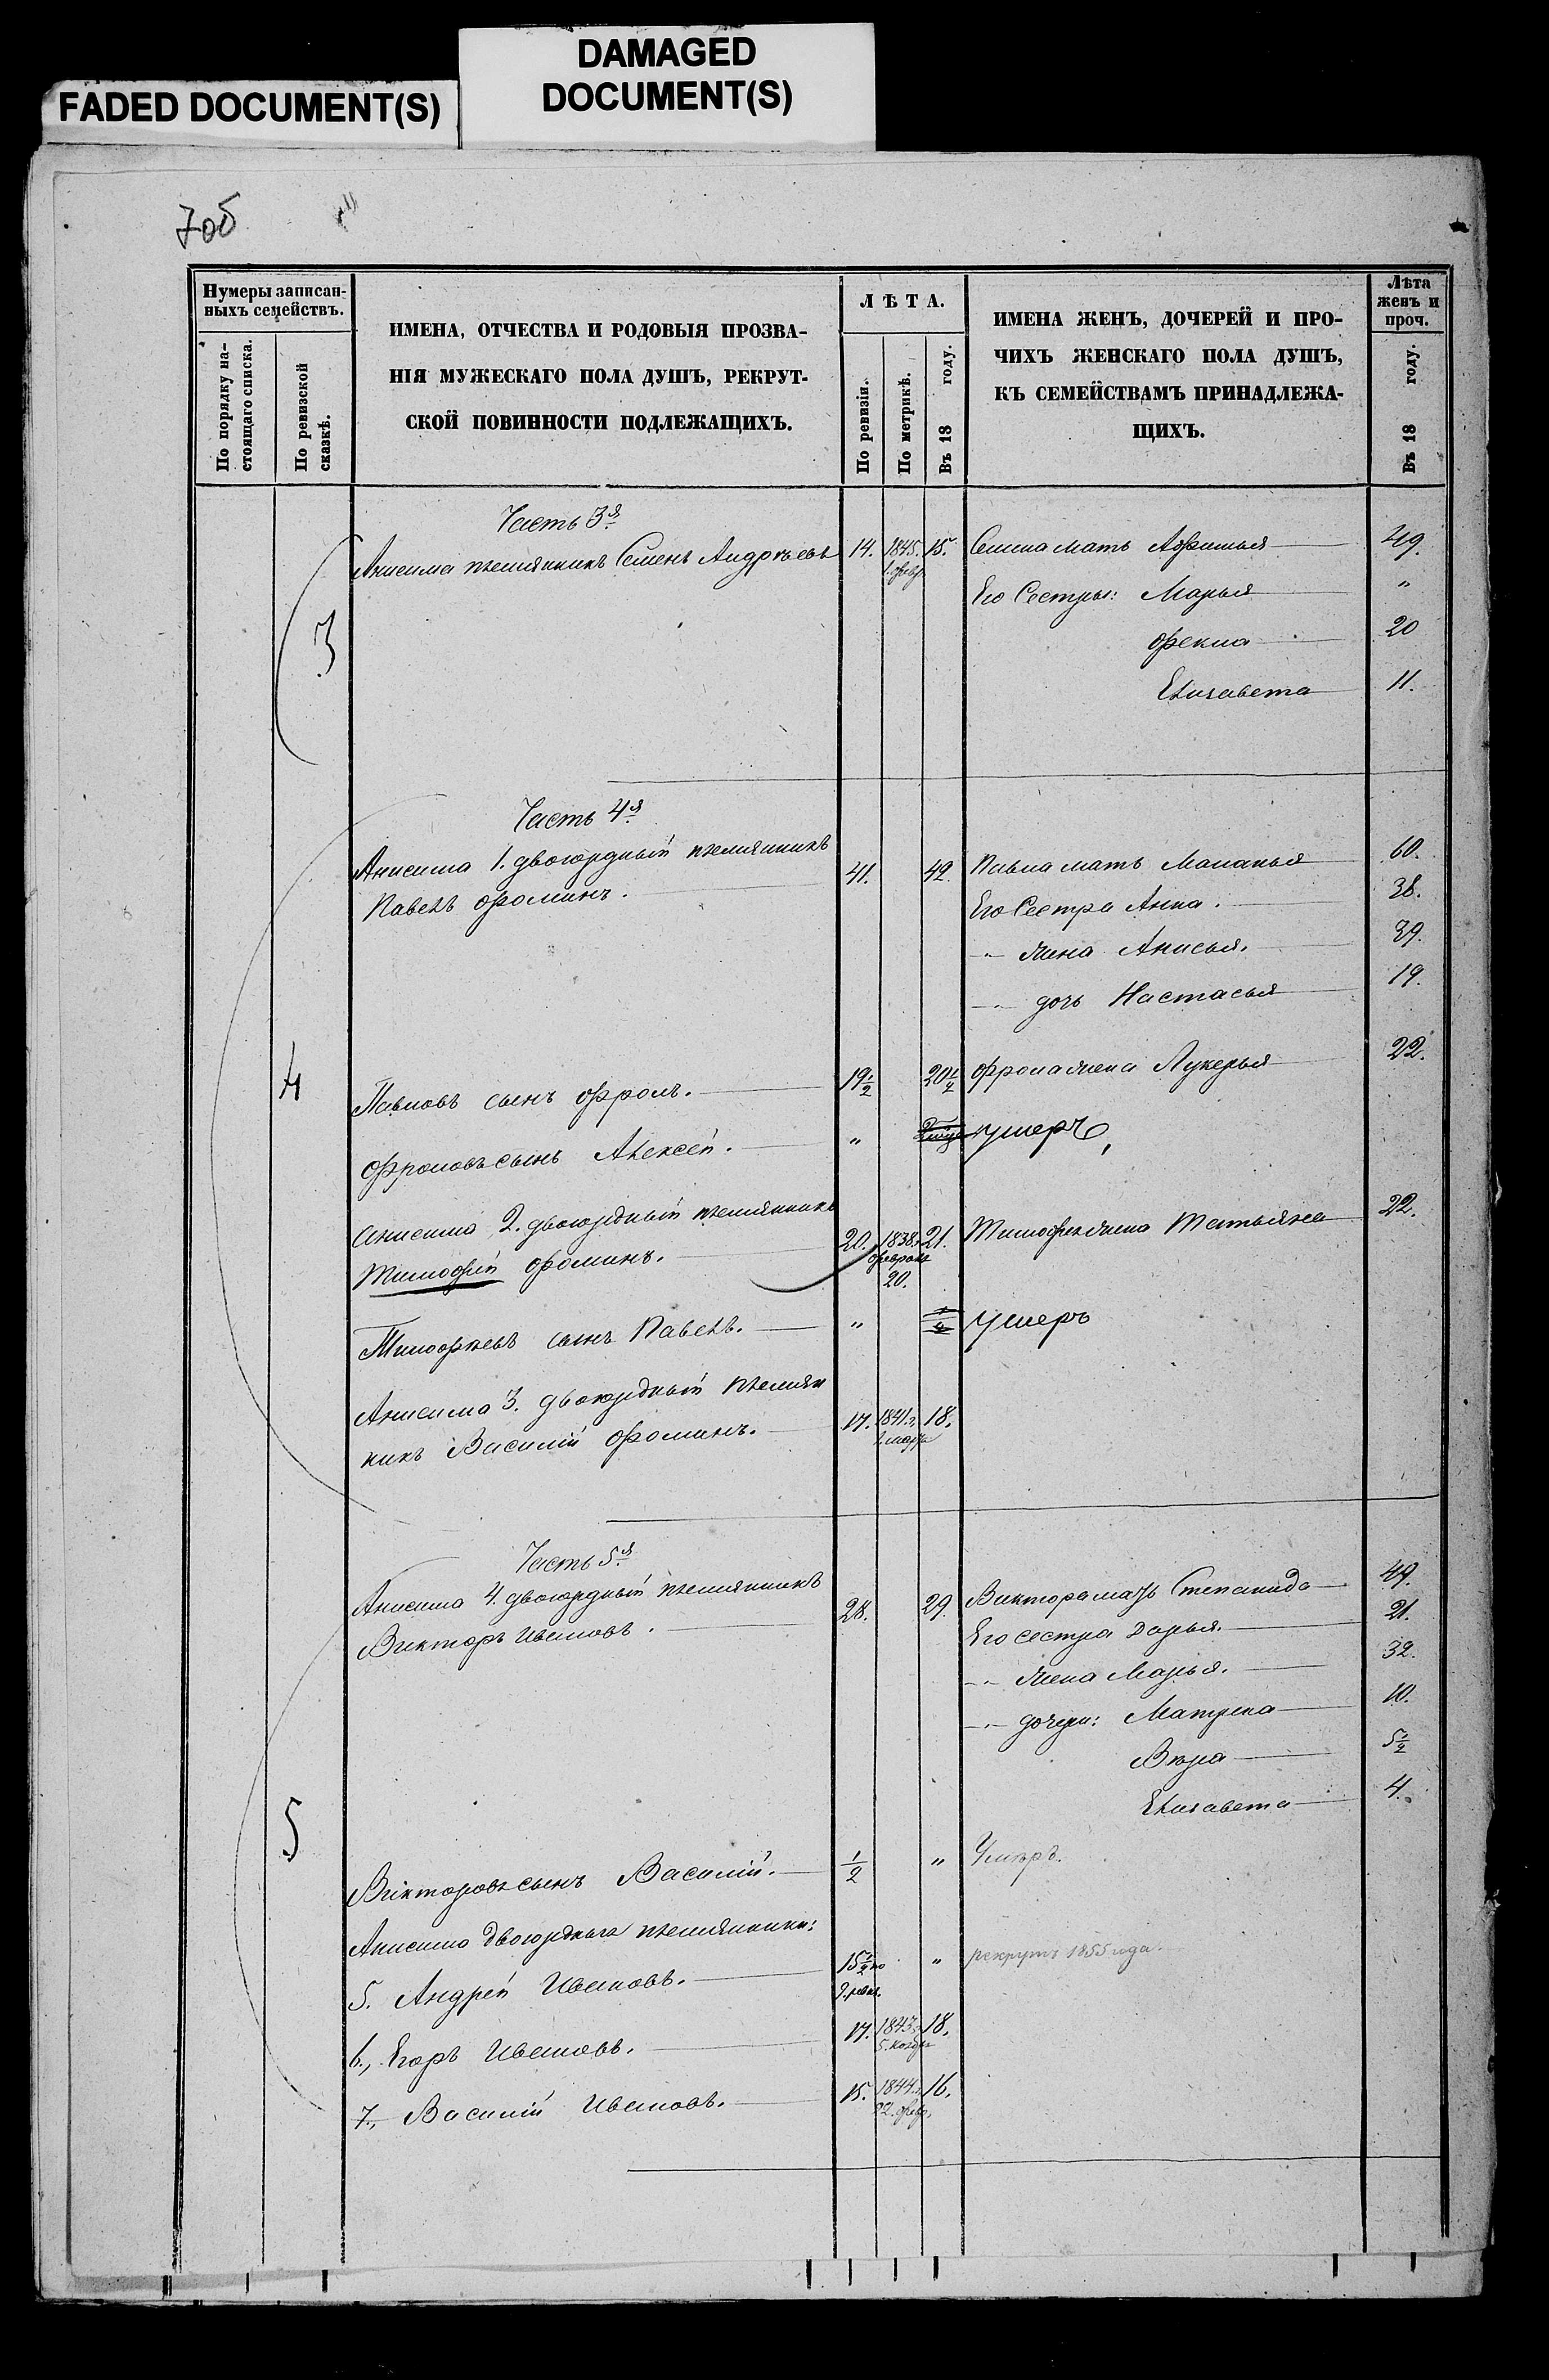 FADED DOCUMENT(S)
DAMAGED
DOCUMENT(S)
7об
Нумеры записан-
ныхъ семействъ.
По порядку на-
стоящаго списка.
По ревизской
сказкѣ.
ИМЕНА, ОТЧЕСТВА И РОДОВЫЯ ПРОЗВА-
НІЯ МУЖЕСКАГО ПОЛА ДУШЪ, РЕКРУТ-
СКОЙ ПОВИННОСТИ ПОДЛЕЖАЩИХЪ.
ЛѢТА.
По ревизіи.
По метрикѣ.
Въ 18 году.
ИМЕНА ЖЕНЪ, ДОЧЕРЕЙ И ПРО-
ЧИХЪ ЖЕНСКАГО ПОЛА ДУШЪ,
КЪ СЕМЕЙСТВАМЪ ПРИНАДЛЕЖА-
ЩИХЪ.
Лѣта
женъ и
проч.
Въ 18 году.
Часть 3я
Анисима племянникъ Семенъ Андреевъ 14. 1845. 15. Семена мать Афимья 49.
1. февр.
Его Сестры: Марья "
3
Фекла 20
Елизавета 11.
Часть 4я
Анисима 1. двоюрдный племянникъ
Павелъ Фоминъ. 41. 42. Павла мать Маланья 60.
Его Сестра Анна. 38.
-"- жена Анисья. 39.
-"- дочь Настасья 19.
4
Павловъ сынъ Фролъ. 19½ 20½ Фрола жена Лукерья 22.
Фроловъ сынъ Алексѣй. " умеръ
Анисима 2. двоюрдный племянникъ
Тимофѣй Фоминъ. 20. 1838. 21. Тимофея жена Татьяна 22.
февраля
20.
Тимофѣевъ сынъ Павелъ. " умеръ
Анисима 3. двоюрдный племян
никъ Василій Фоминъ. 17. 1841. 18.
марта
Часть 5я
Анисима 4. двоюрдный племянникъ
Викторъ Ивановъ. 28. 29. Виктора мать Степанида 49.
Его сестра Дарья. 21.
-"- жена Марья. 32.
-"- дочери: Матрена 10.
Вѣра 5½
Елизавета 4.
5
Викторовъ сынъ Василій. ½ " Умеръ.
Анисима двоюрдныя племянники:
5. Андрей Ивановъ. 15½ по " рекрутъ 1855 года.
9. ревиз.
6., Егоръ Ивановъ. 17. 1843. 18.
5. ноября
7., Василій Ивановъ. 15. 1844. 16.
22. февр.